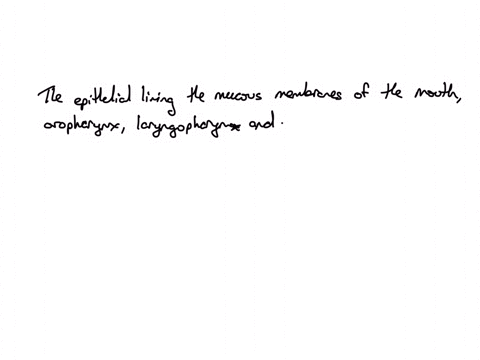 The epithelial lining the mucous membranes of the mouth,
oropharynx, laryngopharynx and.